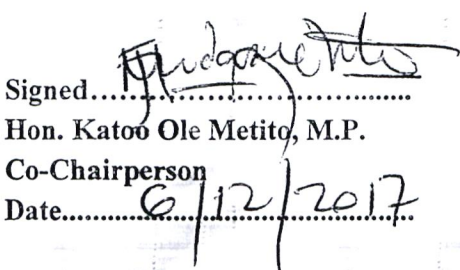 Signed......................................
Hon. Katoo Ole Metito, M.P.
Co-Chairperson
Date......6/12/2017